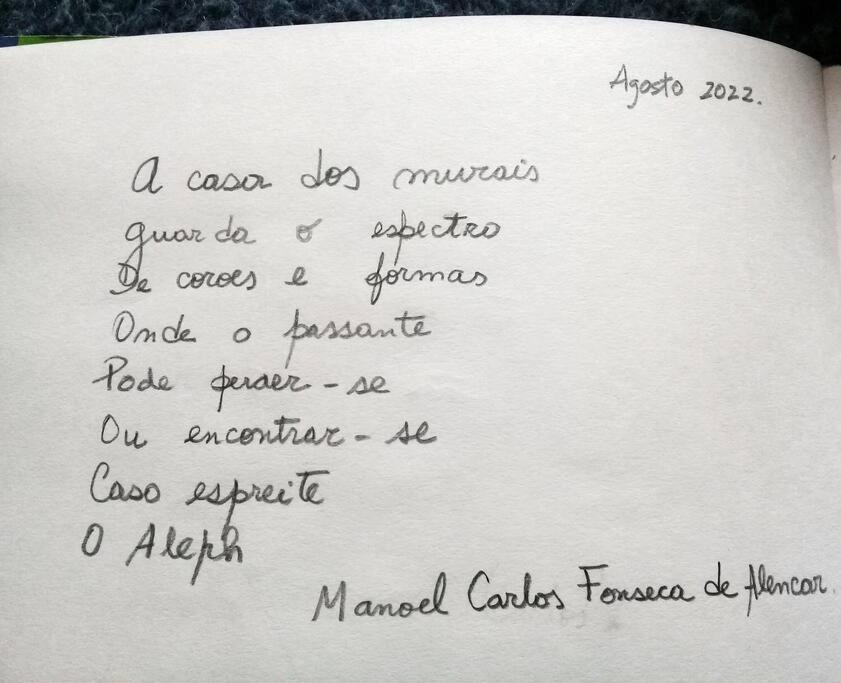 Agosto 2022.
A casa dos murais
guarda o espectro
De cores e formas
Onde o passante
Pode perder-se
Ou encontrar-se
Caso espreite
O Aleph
Manoel Carlos Fonseca de Alencar.